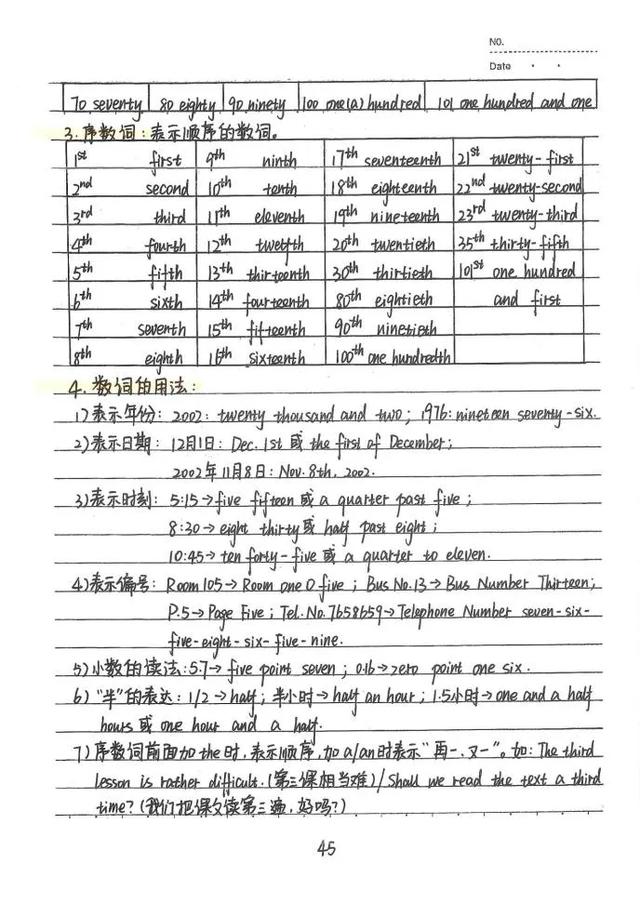 NO.
Date
70 seventy 80 eighty 90 ninety 100 one(a) hundred 101 one hundred and one
3. 序数词：表示顺序的数词。
1st first 9th ninth 17th seventeenth 21st twenty-first
2nd second 10th tenth 18th eighteenth 22nd twenty-second
3rd third 11th eleventh 19th nineteenth 23rd twenty-third
4th fourth 12th twelfth 20th twentieth 35th thirty-fifth
5th fifth 13th thirteenth 30th thirtieth 101st one hundred
6th sixth 14th fourteenth 80th eightieth and first
7th seventh 15th fifteenth 90th ninetieth
8th eighth 16th sixteenth 100th one hundredth
4. 数词的用法：
1)表示年份：2002：twenty thousand and two；1976：nineteen seventy-six.
2)表示日期：12月1日：Dec. 1st 或 the first of December；
2002年11月8日：Nov. 8th, 2002.
3)表示时刻：5:15→five fifteen 或 a quarter past five；
8:30→eight thirty 或 half past eight；
10:45→ten forty-five 或 a quarter to eleven.
4)表示编号：Room 105→Room one O five；Bus No.13→Bus Number Thirteen；
P.5→Page Five；Tel. No. 7658659→Telephone Number seven-six-
five-eight-six-five-nine.
5)小数的读法：5.7→five point seven；0.16→zero point one six.
6)“半”的表达：1/2→half；半小时→half an hour；1.5小时→one and a half
hours 或 one hour and a half.
7)序数词前面加the时，表示顺序，加a/an时表示“再一、又一”。如：The third
lesson is rather difficult.(第三课相当难)/Shall we read the text a third
time?(我们把课文读第三遍，好吗?)
45